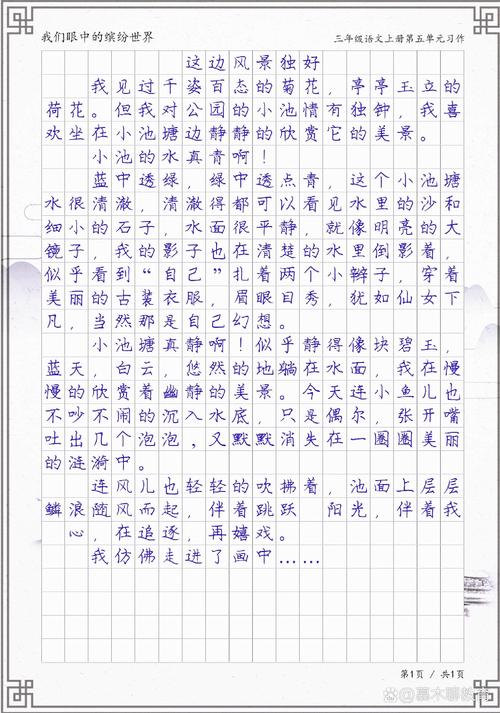 我们眼中的缤纷世界
三年级语文上册第五单元习作
这边风景独好
我见过千姿百态的菊花，亭亭玉立的
荷花。但我对公园的小池情有独钟，我喜
欢坐在小池塘边静静的欣赏它的美景。
小池的水真青啊！
蓝中透绿，绿中透点青，这个小池塘
水很清澈，清澈得都可以看见水里的沙和
细小的石子，水面很平静，就像明亮的大
镜子，我的影子也在清楚的水里倒影着，
似乎看到“自己”扎着两个小辫子，穿着
美丽的古装衣服，眉眼目秀，犹如仙女下
凡，当然那是自己幻想。
小池塘真静啊！似乎静得像块碧玉，
蓝天，白云，悠然的地躺在水面，我在慢
慢的欣赏着幽静的美景。今天连小鱼儿也
不吵不闹的沉入水底，只是偶尔，张开嘴
吐出几个泡泡，又默默消失在一圈圈美丽
的涟漪中。
连风儿也轻轻的吹拂着，池面上层层
鳞浪随风而起，伴着跳跃 阳光，伴着我
心，在追逐，再嬉戏。
我仿佛走进了画中……
第1页 / 共1页
@慕木聊教育